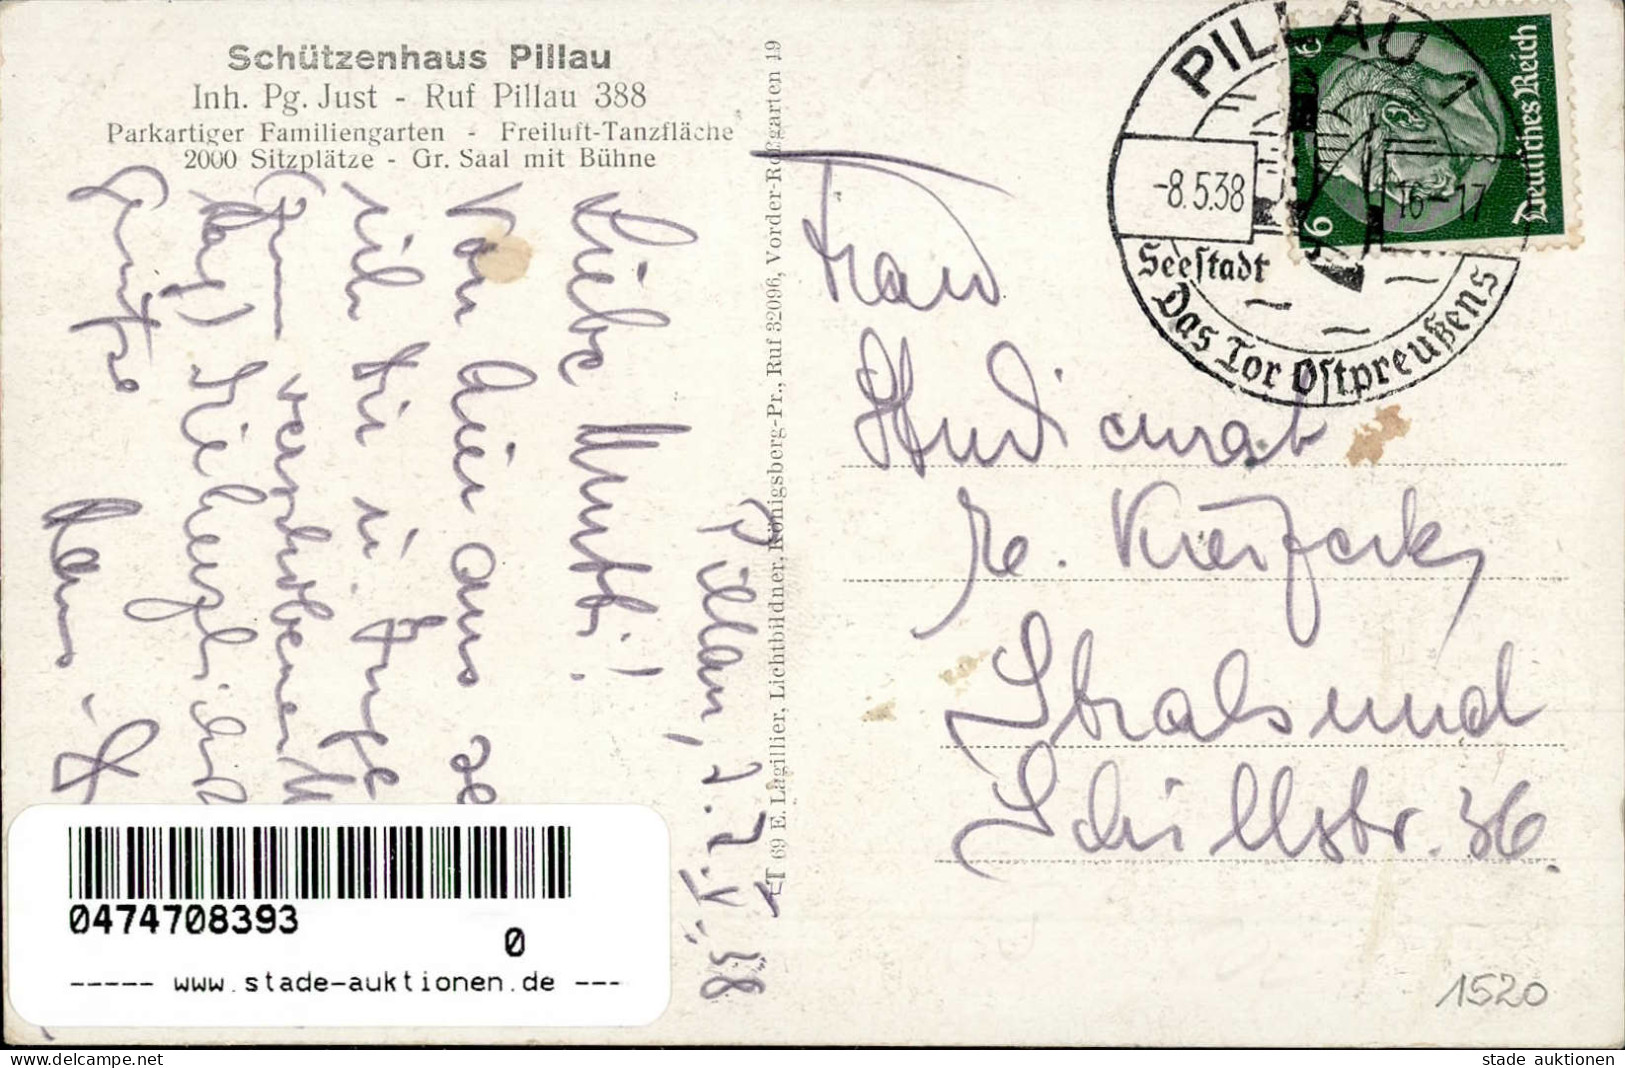 Schützenhaus Pillau
Inh. Pg. Just - Ruf Pillau 388
Parkartiger Familiengarten - Freiluft-Tanzfläche
2000 Sitzplätze - Gr. Saal mit Bühne
Pillau, 7.V.38
Liebe Mutti!
Von hier aus se
ich Dir u. Inge
verschobener
herzlichst
Grüße
Hans
LT 69 E. Lagillier, Lichtbildner, Königsberg-Pr., Ruf 32096, Vorder-Roßgarten 19
PILLAU 1
-8.5.38
16-17
Seestadt
Das Tor Ostpreußens
Deutsches Reich
6
6
Frau
Studienrat
Stralsund
Schillstr. 36.
1520
0474708393
0
----- www.stade-auktionen.de ---
www.delcampe.net
stade auktionen